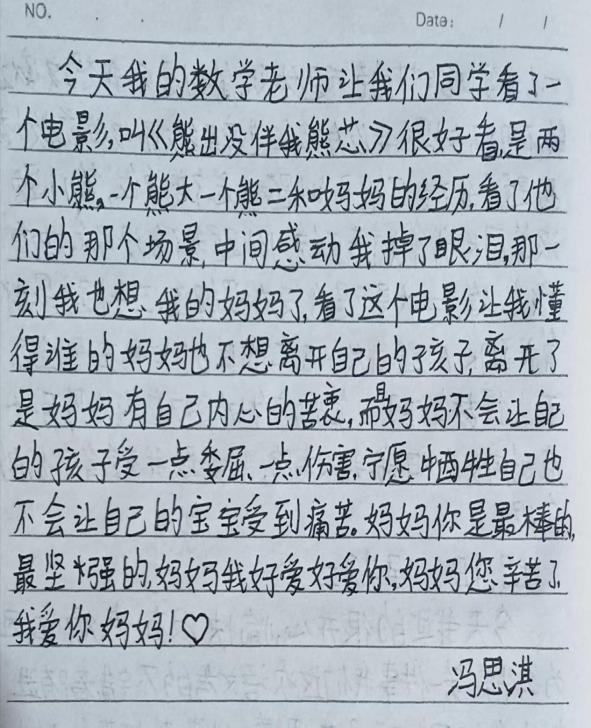 NO.
Date: / /
今天我的数学老师让我们同学看了一
个电影,叫《熊出没伴我熊芯》很好看,是两
个小熊,一个熊大一个熊二和妈妈的经历,看了他
们的那个场景,中间感动我掉了眼泪,那一
刻我也想我的妈妈了,看了这个电影让我懂
得谁的妈妈也不想离开自己的孩子,离开了
是妈妈有自己内心的苦衷,而是妈妈不会让自己
的孩子受一点委屈、一点伤害,宁愿牺牲自己也
不会让自己的宝宝受到痛苦。妈妈你是最棒的,
最坚强的,妈妈我好爱好爱你,妈妈您辛苦了
我爱你妈妈!♡
冯思淇